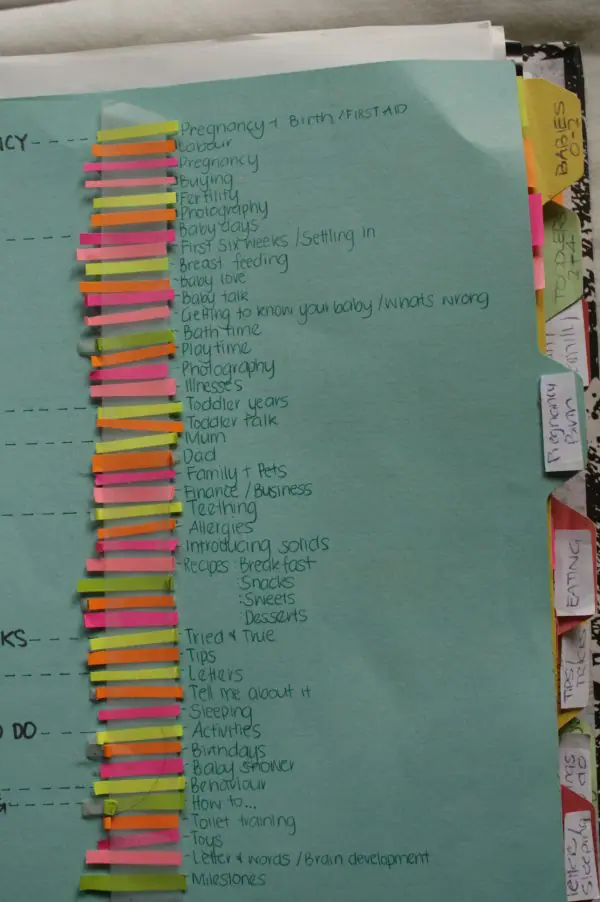 ICY
Pregnancy + Birth /FIRST AID
Labour
Pregnancy
Buying
Fertility
Photography
Baby days
First six weeks /Settling in
Breast feeding
Baby love
Baby talk
Getting to know your baby /whats wrong
Bath time
Playtime
Photography
Illnesses
Toddler years
Toddler talk
Mum
Dad
Family + Pets
Finance / Business
Teething
Allergies
Introducing solids
Recipes: Breakfast
:Snacks
:Sweets
:Desserts
KS
Tried & True
Tips
Letters
Tell me about it
Sleeping
O DO
Activities
Birthdays
Baby shower
Behaviour
G
How to...
Toilet training
Toys
Letter & words / Brain development
Milestones
BABIES
0-2
TODDLERS
2-4
Pregnancy
EATING
TIPS/
TRICKS
do
Sleeping